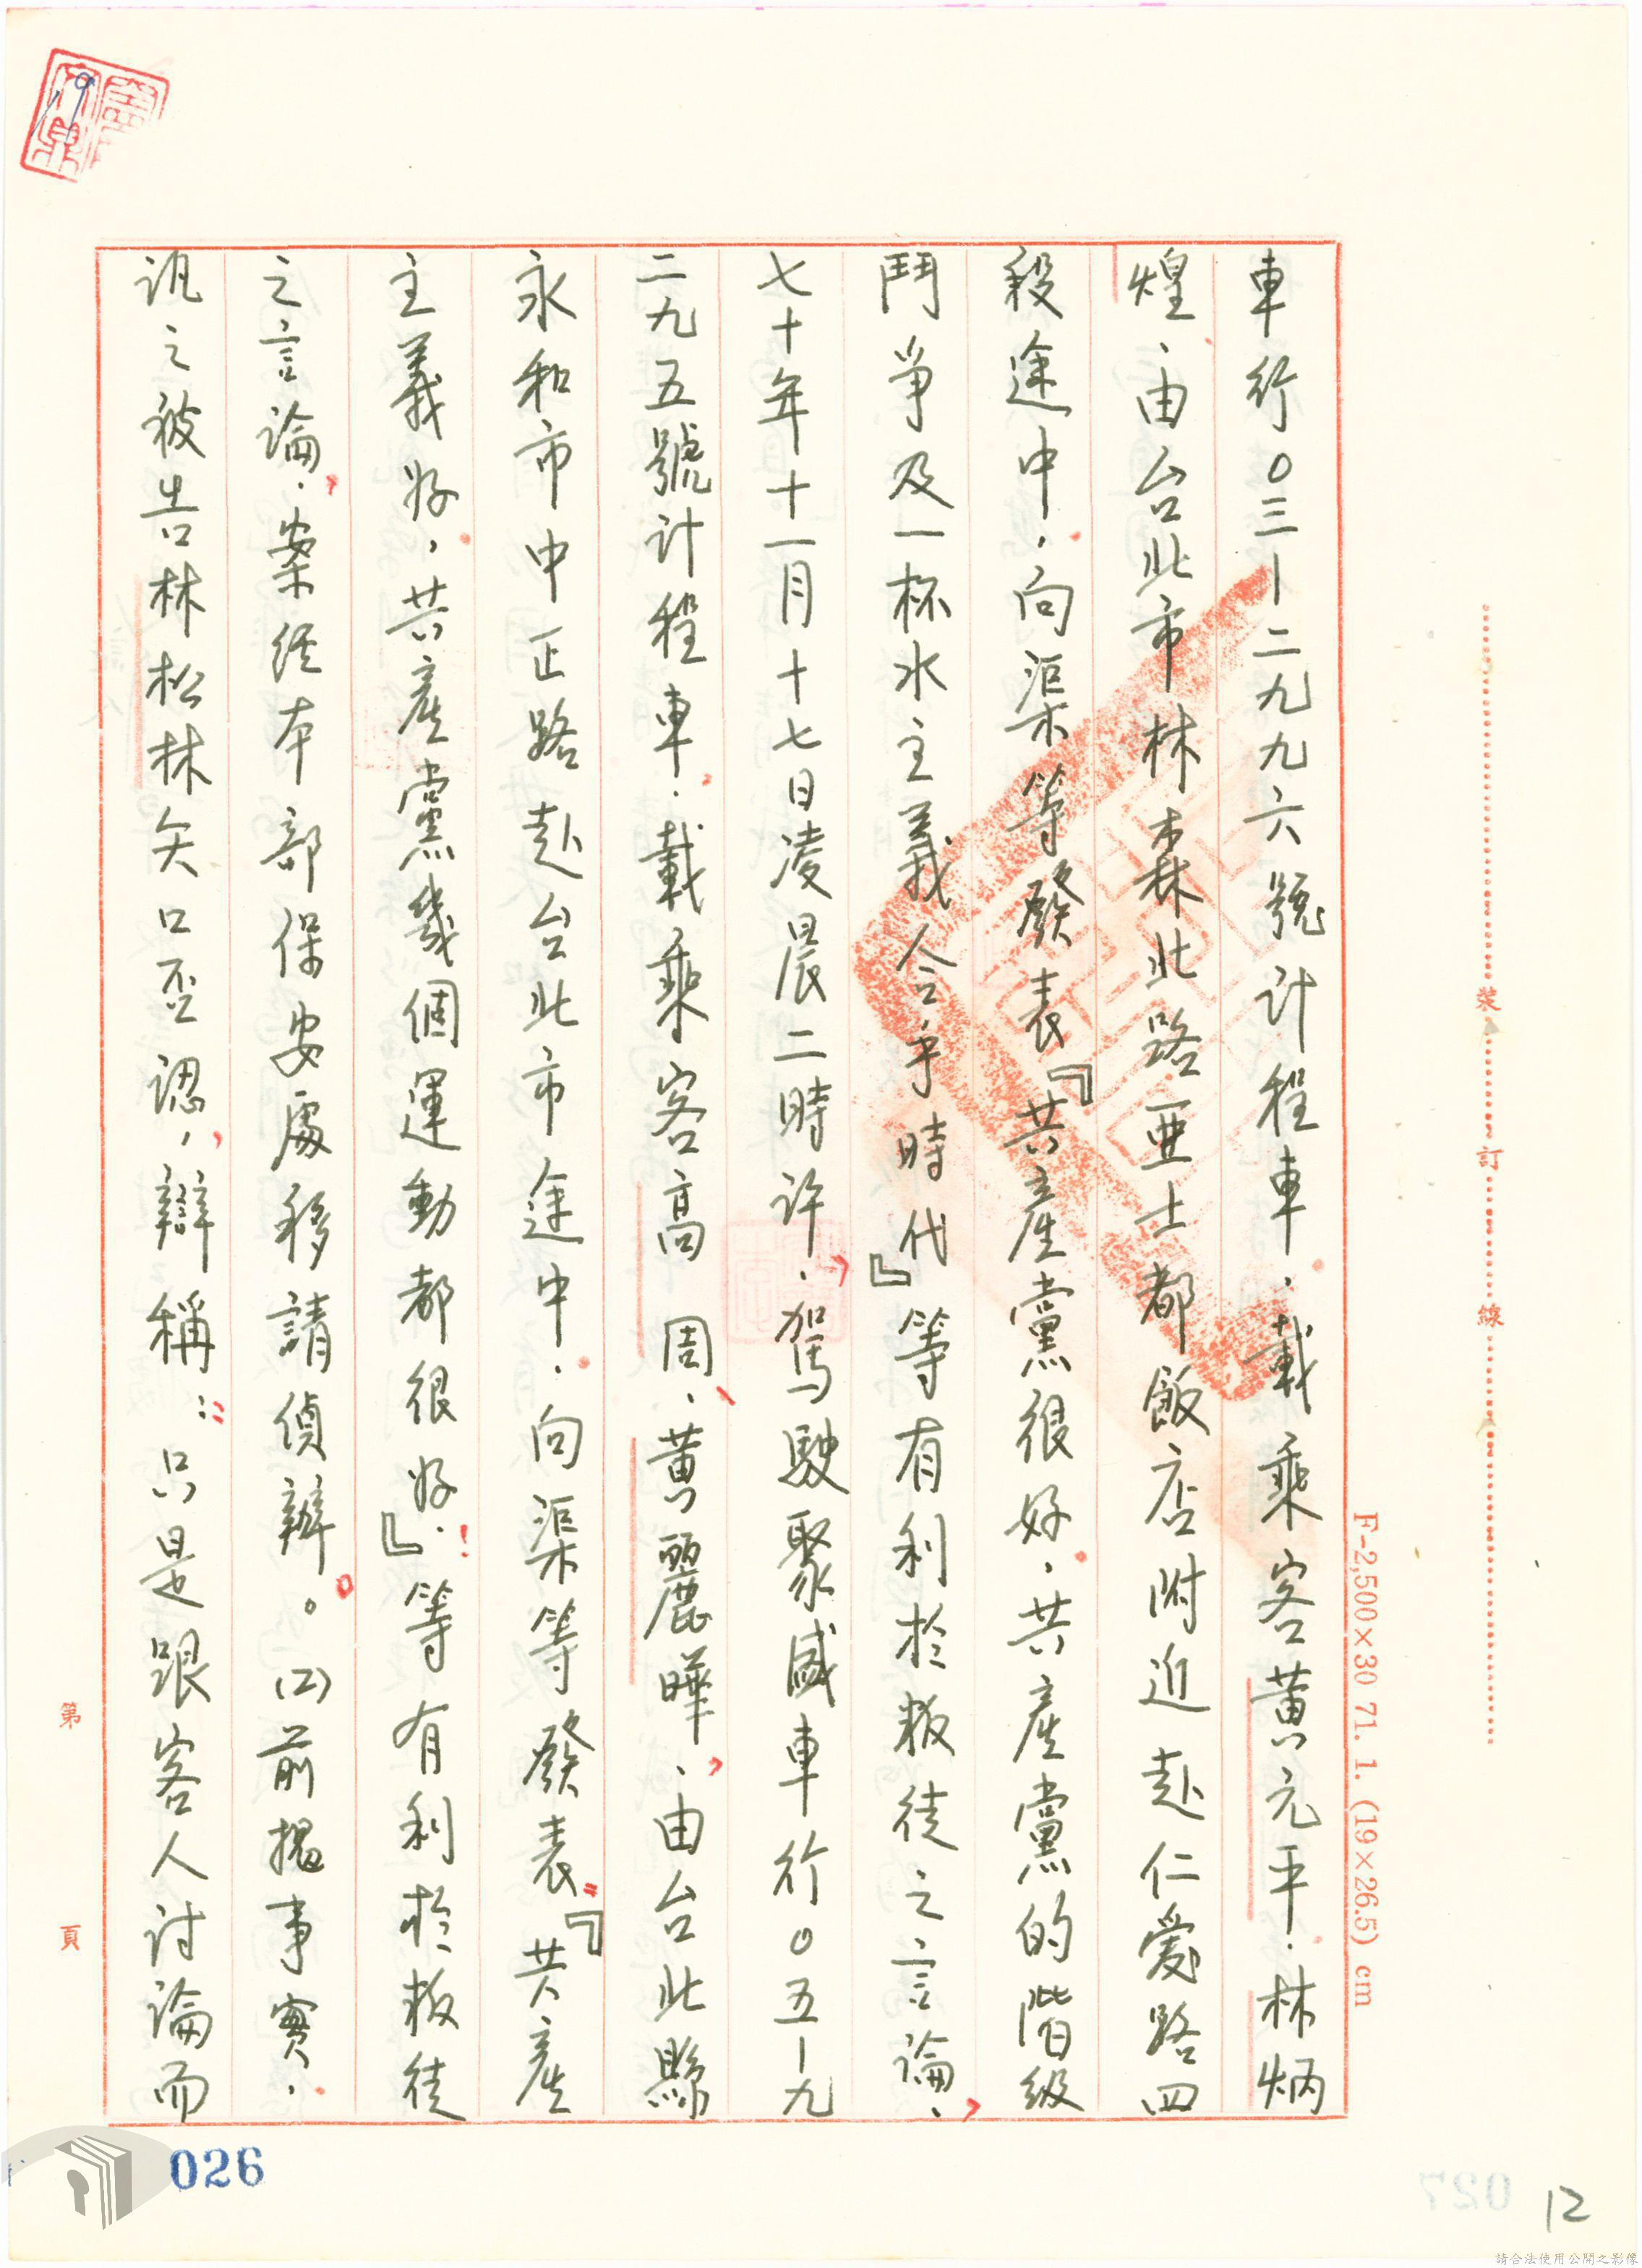 車行〇三－二九九六號計程車，載乘客黃元平、林炳
煌，由台北市林森北路亞士都飯店附近赴仁愛路四
段途中，向渠等發表『共產黨很好，共產黨的階級
鬥爭及一杯水主義合乎時代』等有利於叛徒之言論，
七十年十一月十七日凌晨二時許，駕駛聚盛車行〇五－九
二九五號計程車，載乘客高周、黃麗曄，由台北縣
永和市中正路赴台北市途中，向渠等發表『共產
主義好，共產黨幾個運動都很好』等有利於叛徒
之言論，案經本部保安處移請偵辦。(二)前揭事實，
訊之被告林松林矢口否認，辯稱：只是跟客人討論而
裝
訂
線
F-2,500×30 71. 1. (19×26.5) cm
第
頁
026
027
12
請合法使用公開之影像